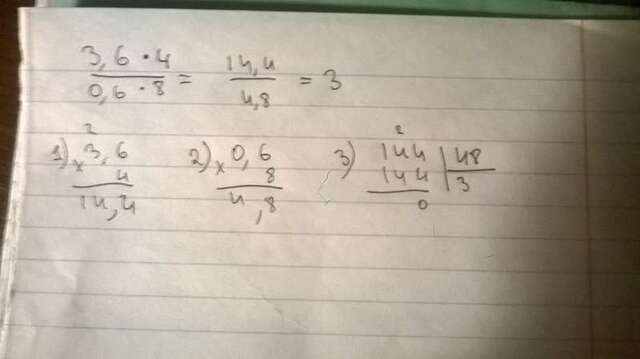 3,6 · 4 / 0,6 · 8 = 14,4 / 4,8 = 3
1) 2 3,6 × 4 14,4
2) 0,6 × 8 4,8
3) 2 144 | 48 144 3 0